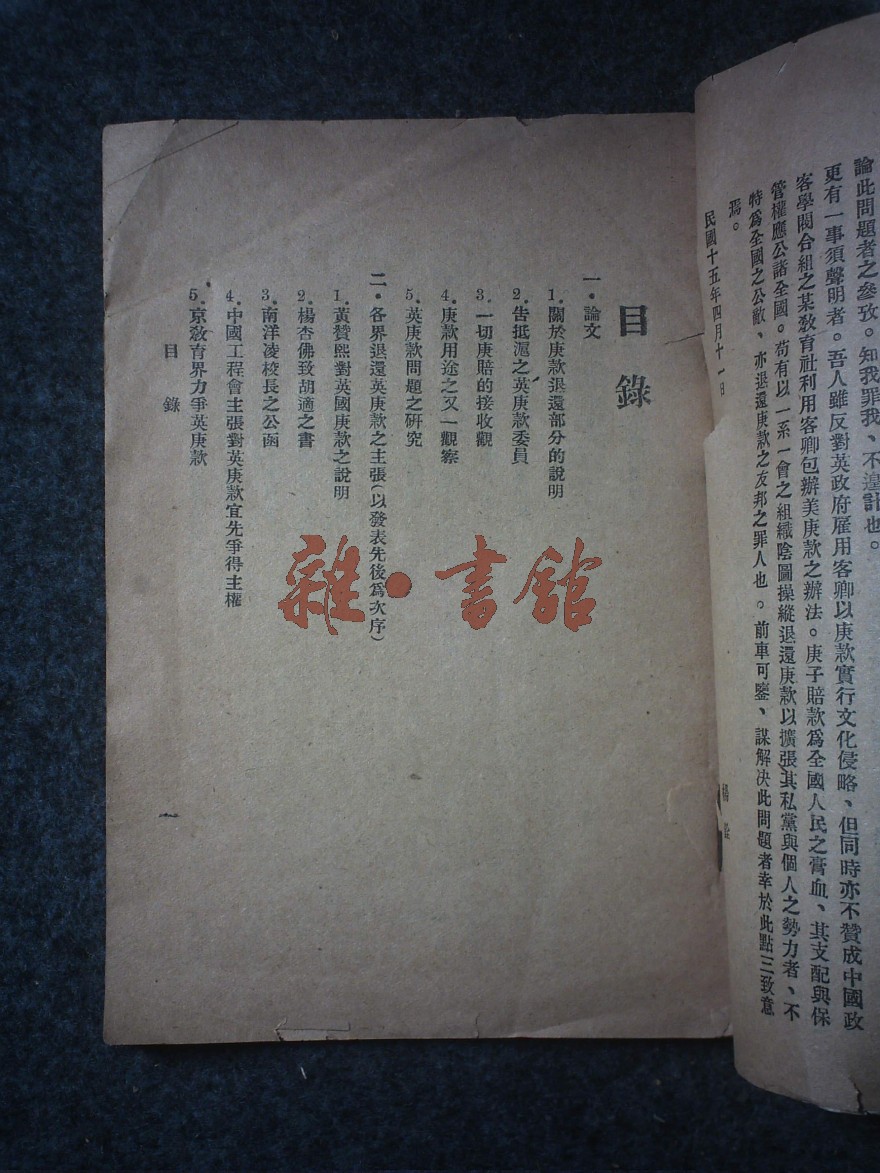 論此問題者之參攷。知我罪我、不遑計也。
更有一事須聲明者。吾人雖反對英政府雇用客卿以庚款實行文化侵略、但同時亦不贊成中國政
客學閥合組之某敎育社利用客卿包辦美庚款之辦法。庚子賠款爲全國人民之膏血、其支配與保
管權應公諸全國。苟有以一系一會之組織陰圖操縱退還庚款以擴張其私黨與個人之勢力者、不
特爲全國之公敵、亦退還庚款之友邦之罪人也。前車可鑒、謀解決此問題者幸於此點三致意
焉。
民國十五年四月十一日
楊
目錄
一．論文
1．關於庚款退還部分的說明
2．告抵滬之英庚款委員
3．一切庚賠的接收觀
4．庚款用途之又一觀察
5．英庚款問題之研究
二．各界退還英庚款之主張（以發表先後爲次序）
1．黃贊熙對英國庚款之說明
2．楊杏佛致胡適之書
3．南洋凌校長之公函
4．中國工程會主張對英庚款宜先爭得主權
5．京敎育界力爭英庚款
目錄
雜·書舘